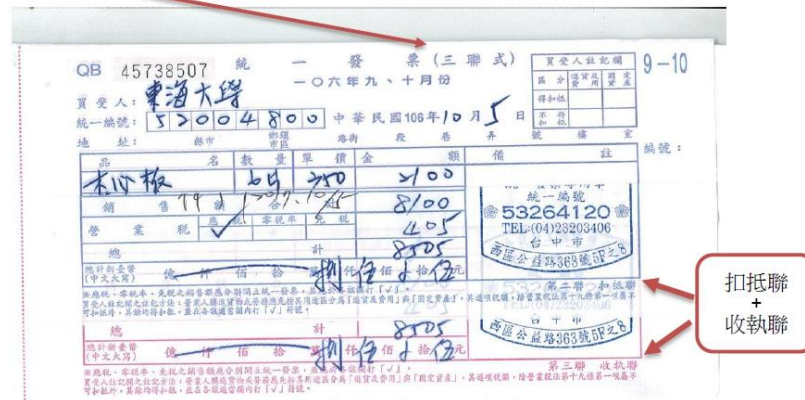 QB 45738507 統一發票(三聯式) 買受人註記欄 9-10
一○六年九、十月份 區分 進貨及費用 固定資產
買受人: 東海大學 得扣抵
統一編號: 52004800 中華民國106年10月5日 不得扣抵
地址: 縣市 鄉鎮市區 路街 段 巷 弄 號 樓 室
編號:
品名 數量 單價 金額 備註
木心板 6片 350 2100
銷售額合計 8100
營業稅 應稅 ✓ 零稅率 免稅 405
總計 8505
總計新臺幣(中文大寫) 億 仟 佰 拾 萬 捌仟 伍佰 拾 伍元
統一編號
53264120
TEL:(04)23203406
台中市
西區公益路363號5F之8
第二聯 扣抵聯
※應稅、零稅率、免稅之銷售額應分別開立統一發票,並應於各該欄打「✓」。
買受人註記欄之註記方法:營業人購進貨物或勞務應先按其用途區分為「進貨及費用」與「固定資產」,其進項稅額,除營業稅法第十九條第一項屬不
可扣抵外,其餘均得扣抵,並在各該適當欄內打「✓」符號。
扣抵聯
+
收執聯
總計 8505
總計新臺幣(中文大寫) 億 仟 佰 拾 萬 捌仟 伍佰 拾 伍元
台中市
西區公益路363號5F之8
第三聯 收執聯
※應稅、零稅率、免稅之銷售額應分別開立統一發票,並應於各該欄打「✓」。
買受人註記欄之註記方法:營業人購進貨物或勞務應先按其用途區分為「進貨及費用」與「固定資產」,其進項稅額,除營業稅法第十九條第一項屬不
可扣抵外,其餘均得扣抵,並在各該適當欄內打「✓」符號。